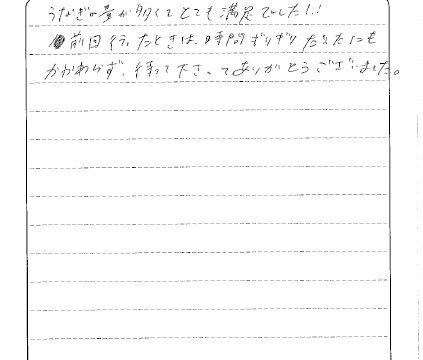 うなぎの量が多くてとても満足でした!!
前回行ったときは、時間ぎりぎりだったにも
かかわらず、待って下さってありがとうございました。